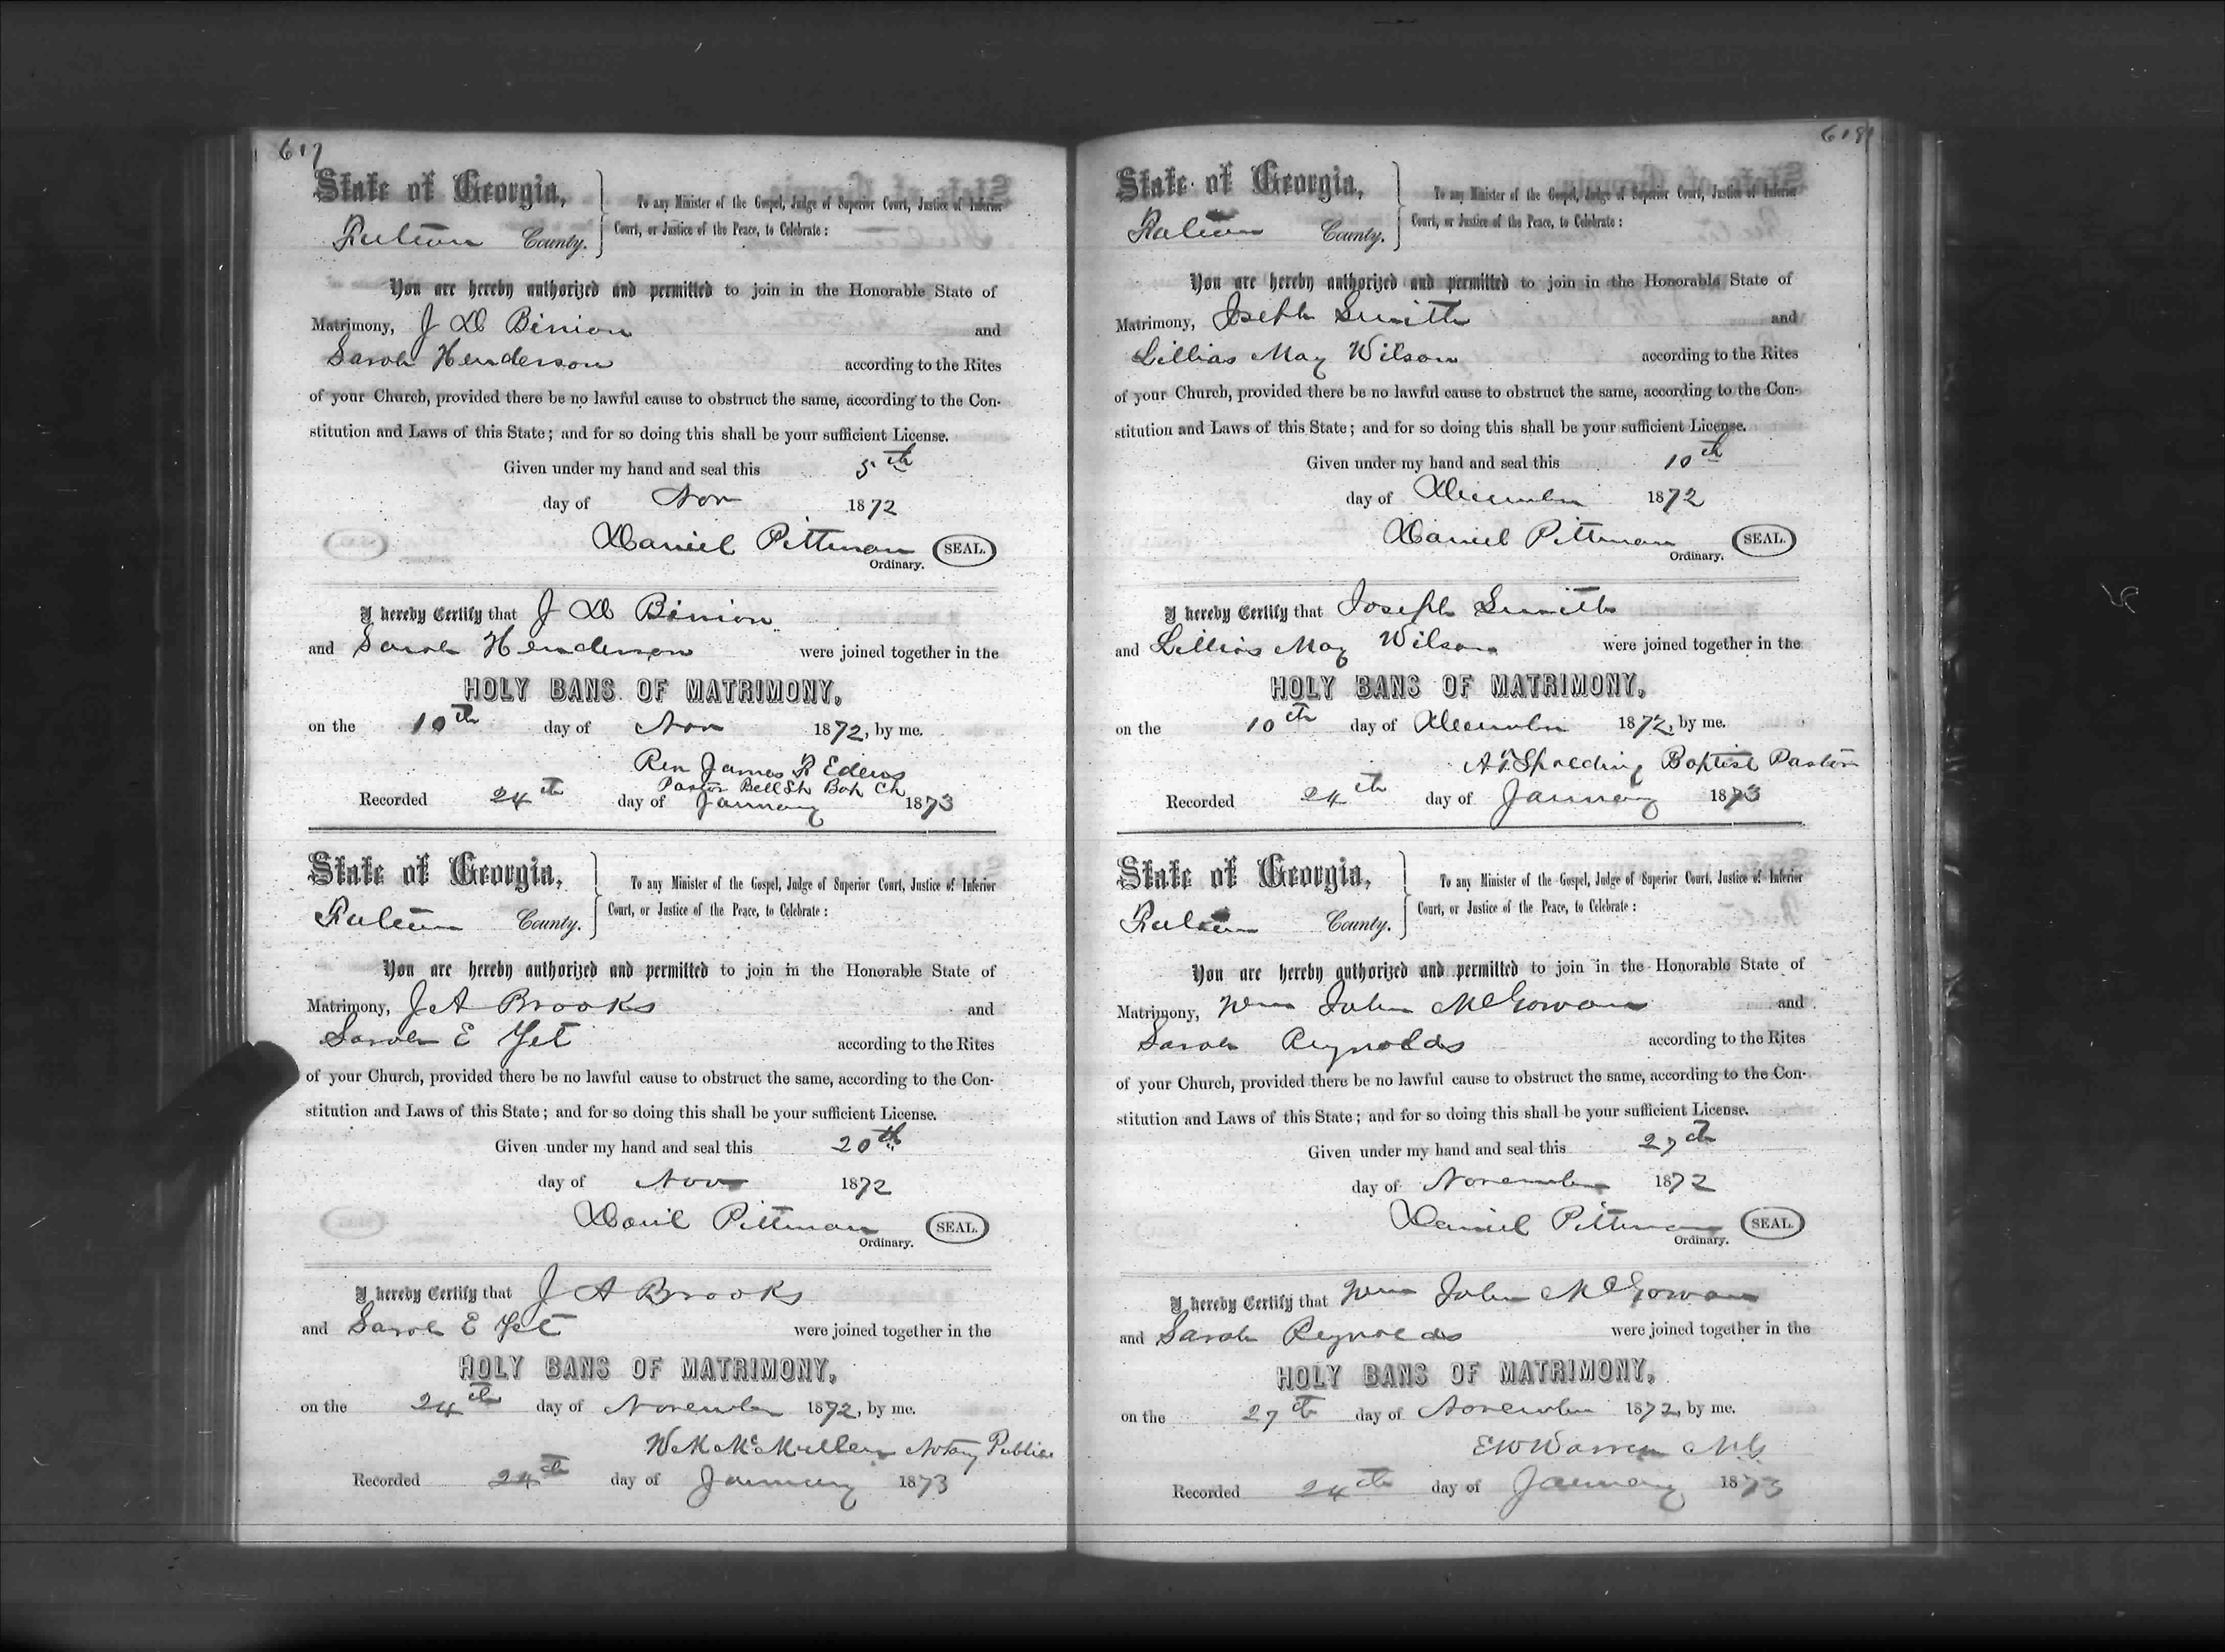 617
State of Georgia,
Fulton County.
To any Minister of the Gospel, Judge of Superior Court, Justice of Inferior
Court, or Justice of the Peace, to Celebrate:
You are hereby authorized and permitted to join in the Honorable State of
Matrimony, J D Binion and
Sarah Henderson according to the Rites
of your Church, provided there be no lawful cause to obstruct the same, according to the Con-
stitution and Laws of this State; and for so doing this shall be your sufficient License.
Given under my hand and seal this 5th
day of Nov 1872
Daniel Pittman SEAL.
Ordinary.
I hereby Certify that J D Binion
and Sarah Henderson were joined together in the
HOLY BANS OF MATRIMONY,
on the 10th day of Nov 1872, by me.
Rev James R
Pastor Bell St Bap Ch
Recorded 24th day of January 1873
State of Georgia,
Fulton County.
To any Minister of the Gospel, Judge of Superior Court, Justice of Inferior
Court, or Justice of the Peace, to Celebrate:
You are hereby authorized and permitted to join in the Honorable State of
Matrimony, J A Brooks and
Sarah E Yet according to the Rites
of your Church, provided there be no lawful cause to obstruct the same, according to the Con-
stitution and Laws of this State; and for so doing this shall be your sufficient License.
Given under my hand and seal this 20th
day of Nov 1872
Daniel Pittman SEAL.
Ordinary.
I hereby Certify that J A Brooks
and Sarah E Yet were joined together in the
HOLY BANS OF MATRIMONY,
on the 24th day of November 1872, by me.
W M McMullen Notary Public
Recorded 24th day of January 1873
618
State of Georgia,
Fulton County.
To any Minister of the Gospel, Judge of Superior Court, Justice of Inferior
Court, or Justice of the Peace, to Celebrate:
You are hereby authorized and permitted to join in the Honorable State of
Matrimony, Joseph Smith and
Lillias May Wilson according to the Rites
of your Church, provided there be no lawful cause to obstruct the same, according to the Con-
stitution and Laws of this State; and for so doing this shall be your sufficient License.
Given under my hand and seal this 10th
day of December 1872
Daniel Pittman SEAL.
Ordinary.
I hereby Certify that Joseph Smith
and Lillias May Wilson were joined together in the
HOLY BANS OF MATRIMONY,
on the 10th day of December 1872, by me.
A T Spalding Baptist Pastor
Recorded 24th day of January 1873
State of Georgia,
Fulton County.
To any Minister of the Gospel, Judge of Superior Court, Justice of Inferior
Court, or Justice of the Peace, to Celebrate:
You are hereby authorized and permitted to join in the Honorable State of
Matrimony, Wm John McGowan and
Sarah Reynolds according to the Rites
of your Church, provided there be no lawful cause to obstruct the same, according to the Con-
stitution and Laws of this State; and for so doing this shall be your sufficient License.
Given under my hand and seal this 27th
day of November 1872
Daniel Pittman SEAL.
Ordinary.
I hereby Certify that Wm John McGowan
and Sarah Reynolds were joined together in the
HOLY BANS OF MATRIMONY,
on the 27th day of November 1872, by me.
E W Warren M G
Recorded 24th day of January 1873